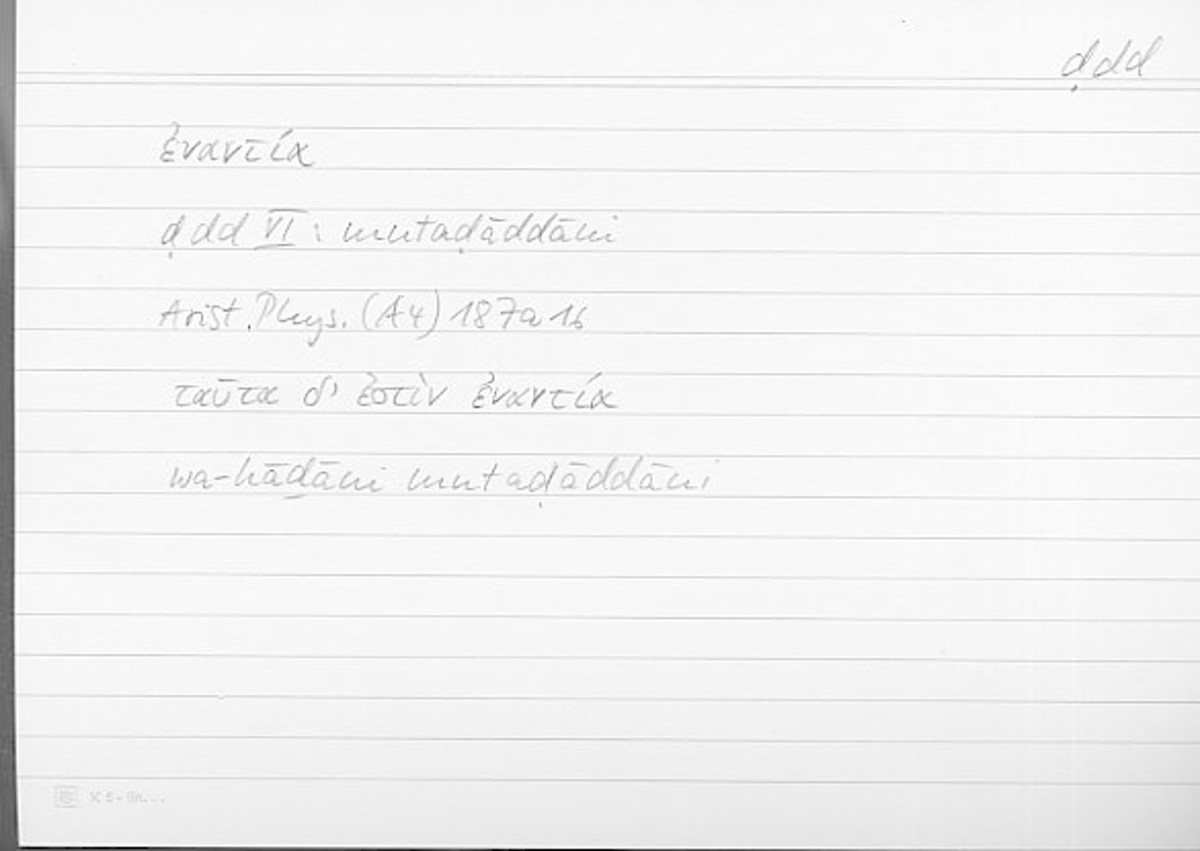 ḍdd
ἐναντία
ḍdd VI: mutaḍāddāni
Arist. Phys. (A4) 187a16
ταῦτα δ' ἐστὶν ἐναντία
wa-hāḏāni mutaḍāddāni